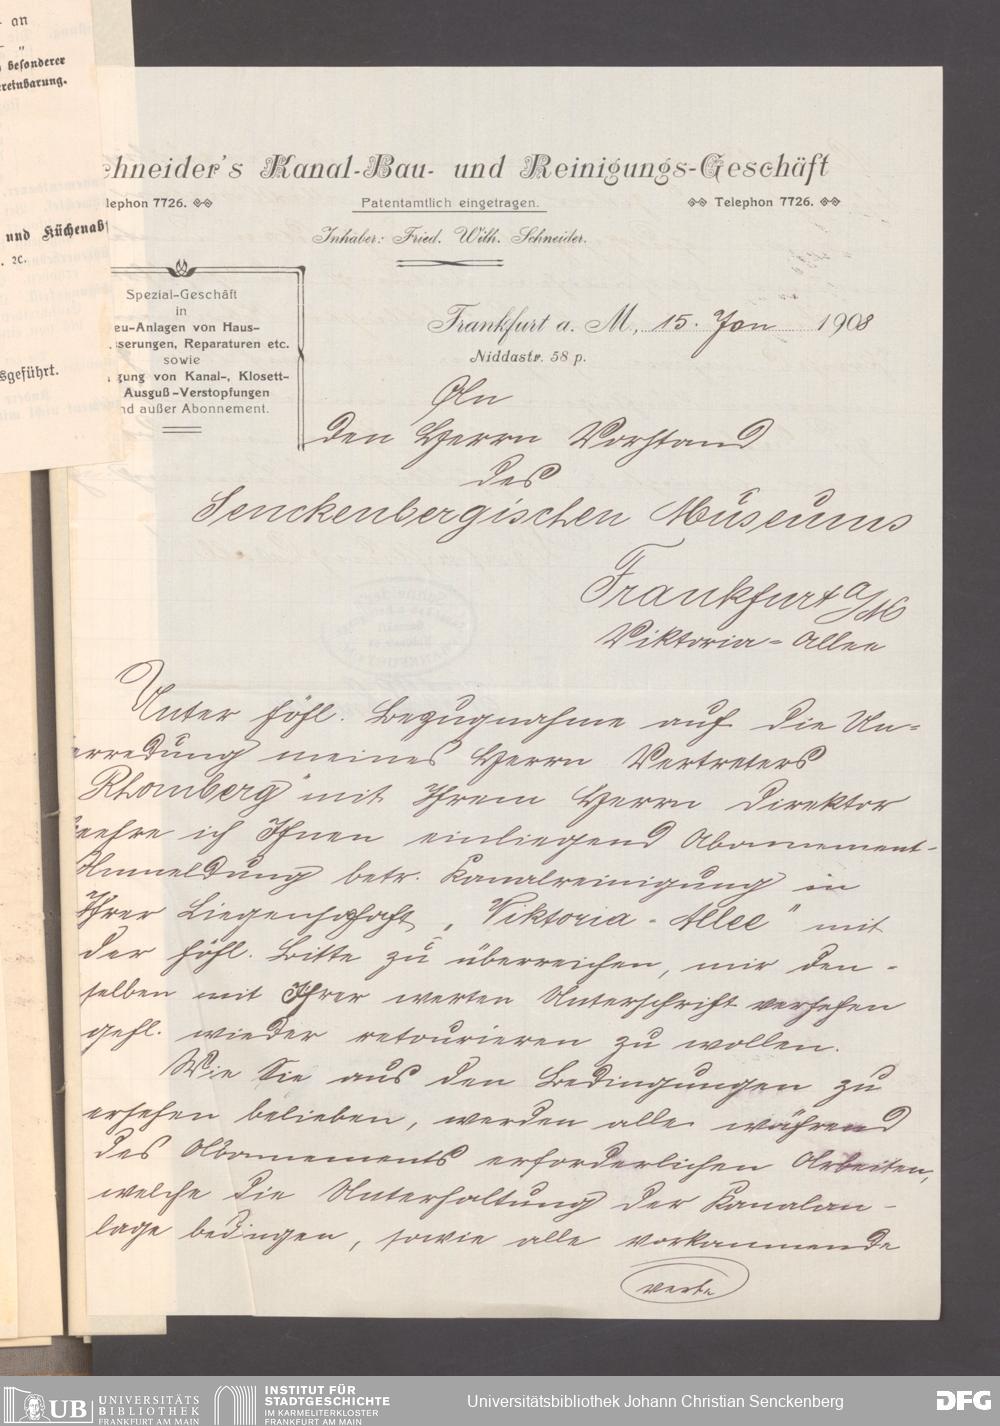 - an
- „
besonderer
reinbarung.
und Küchenab
. 2c.
sgeführt.
chneider's Kanal-Bau- und Reinigungs-Geschäft
lephon 7726.
Patentamtlich eingetragen.
Telephon 7726.
Inhaber: Fried. Wilh. Schneider.
Spezial-Geschäft
in
eu-Anlagen von Haus-
sserungen, Reparaturen etc.
sowie
gung von Kanal-, Klosett-
Ausguß-Verstopfungen
nd außer Abonnement.
Frankfurt a. M., 15. Jan 1908
Niddastr. 58 p.
An
den Herrn Vorstand
des
Senckenbergischen Museums
Frankfurt a/M
Viktoria-Allee
Unter höfl. Bezugnahme auf die Un-
erredung meines Herrn Vertreters
Rhomberg" mit Ihrem Herrn Direktor
beehre ich Ihnen einliegend Abonnement-
Anmeldung betr. Kanalreinigung in
Ihrer Liegenschaft „Viktoria-Allee" mit
der höfl. Bitte zu überreichen, mir den-
selben mit Ihrer werten Unterschrift versehen
gefl. wieder retourieren zu wollen.
Wie Sie aus den Bedingungen zu
ersehen belieben, werden alle während
des Abonnements erforderlichen Arbeiten,
welche die Unterhaltung der Kanalan-
lage bedingen, sowie alle vorkommende
verte
UB UNIVERSITÄTS
BIBLIOTHEK
FRANKFURT AM MAIN
INSTITUT FÜR
STADTGESCHICHTE
IM KARMELITERKLOSTER
FRANKFURT AM MAIN
Universitätsbibliothek Johann Christian Senckenberg
DFG